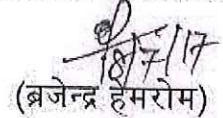 18/7/17
(ब्रजेन्द्र हेमरोम)